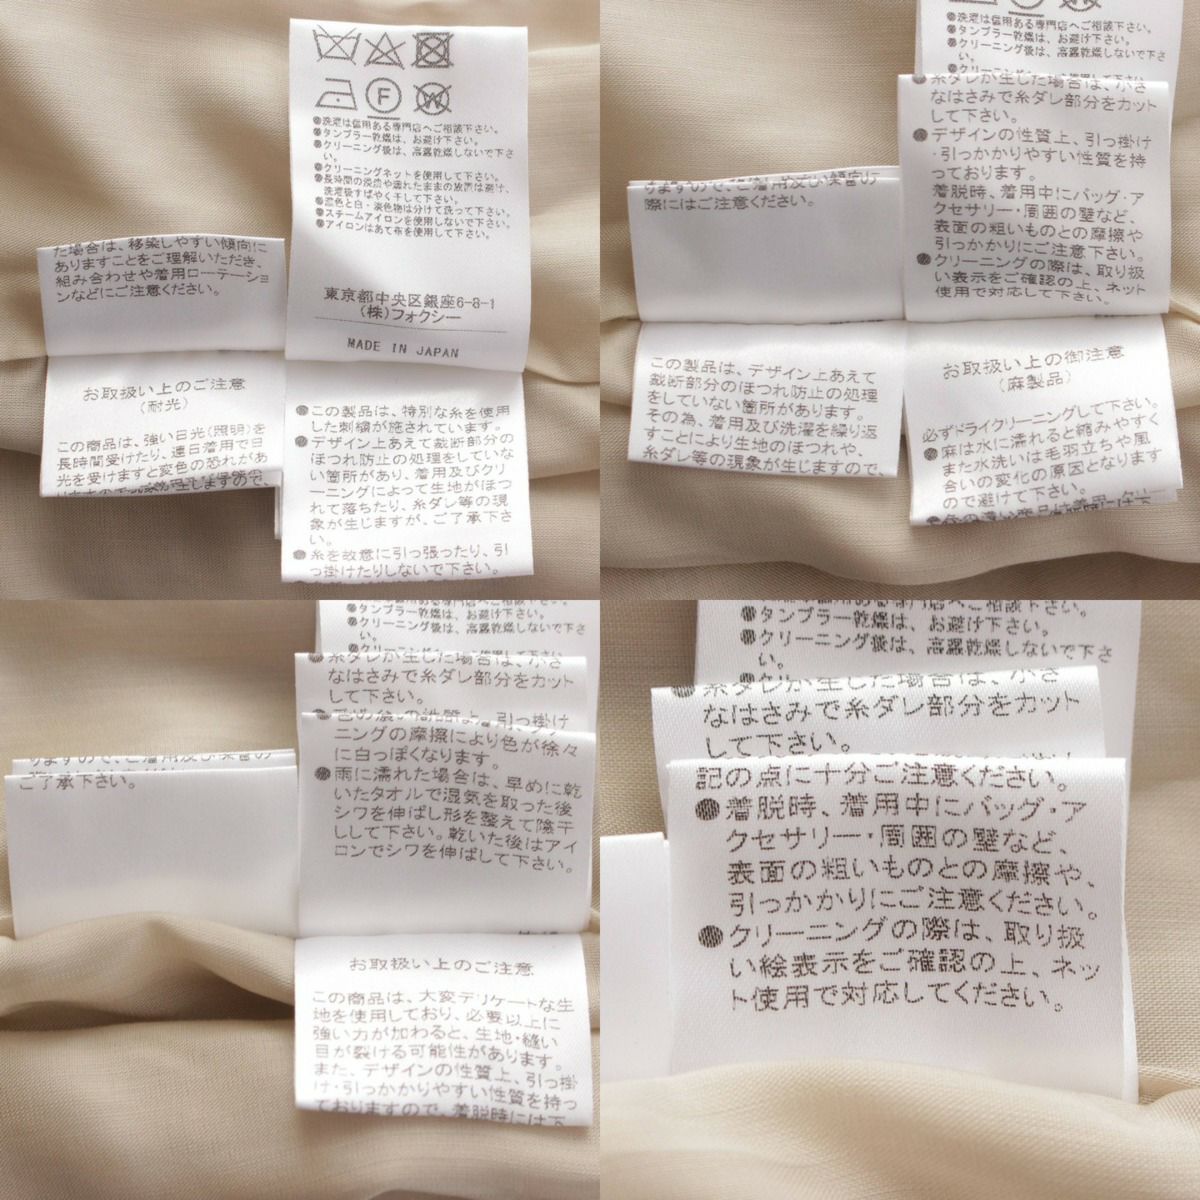 F
W
●洗濯は信用ある専門店へご相談下さい。
●タンブラー乾燥は、お避け下さい。
●クリーニング後は、高温乾燥しないで下さ
い。
●クリーニングネットを使用して下さい。
●長時間の浸漬や濡れたままの放置は避け、
洗濯後すばやく干して下さい。
●濃色と白・淡色物は分けて洗って下さい。
●スチームアイロンを使用しないで下さい。
●アイロンはあて布を使用して下さい。
東京都中央区銀座6-8-1
(株)フォクシー
MADE IN JAPAN
た場合は、移染しやすい傾向に
ありますことをご理解いただき、
組み合わせや着用ローテーショ
ンなどにご注意ください。
お取扱い上のご注意
(耐光)
この商品は、強い日光(照明)を
長時間受けたり、連日着用で日
光を受けますと変色の恐れがあ
●この製品は、特別な糸を使用
した刺繍が施されています。
●デザイン上あえて裁断部分の
ほつれ防止の処理をしていな
い箇所があり、着用及びクリ
ーニングによって生地がほつ
れて落ちたり、糸ダレ等の現
象が生じますが、ご了承下さ
い。
●糸を故意に引っ張ったり、引
っ掛けたりしないで下さい。
●洗濯は信用ある専門店へご相談下さい。
●タンブラー乾燥は、お避け下さい。
●クリーニング後は、高温乾燥しないで下さ
い。
●糸ダレが生じた場合は、小さ
なはさみで糸ダレ部分をカット
して下さい。
●デザインの性質上、引っ掛け
・引っかかりやすい性質を持
っております。
着脱時、着用中にバッグ・ア
クセサリー・周囲の壁など、
表面の粗いものとの摩擦や
引っかかりにご注意下さい。
●クリーニングの際は、取り扱
い表示をご確認の上、ネット
使用で対応して下さい。
りますので、ご着用及び保管の
際にはご注意ください。
この製品は、デザイン上あえて
裁断部分のほつれ防止の処理
をしていない箇所があります。
その為、着用及び洗濯を繰り返
すことにより生地のほつれや、
糸ダレ等の現象が生じますので、
お取扱い上の御注意
(麻製品)
必ずドライクリーニングして下さい。
●麻は水に濡れると縮みやすく
また水洗いは毛羽立ちや風
合いの変化の原因となります
ので避けて下さい。
●タンブラー乾燥は、お避け下さい。
●クリーニング後は、高温乾燥しないで下さ
い。
●糸ダレが生じた場合は、小さ
なはさみで糸ダレ部分をカット
して下さい。
ニングの摩擦により色が徐々
に白っぽくなります。
●雨に濡れた場合は、早めに乾
いたタオルで湿気を取った後
シワを伸ばし形を整えて陰干
しして下さい。乾いた後はアイ
ロンでシワを伸ばして下さい。
りますので、ご着用及び保管の
ご了承下さい。
お取扱い上のご注意
この商品は、大変デリケートな生
地を使用しており、必要以上に
強い力が加わると、生地・縫い
目が裂ける可能性があります。
また、デザインの性質上、引っ掛
け・引っかかりやすい性質を持っ
ておりますので、着脱時には下
●タンブラー乾燥は、お避け下さい。
●クリーニング後は、高温乾燥しないで下さ
い。
●糸ダレが生じた場合は、小さ
なはさみで糸ダレ部分をカット
して下さい。
記の点に十分ご注意ください。
●着脱時、着用中にバッグ・ア
クセサリー・周囲の壁など、
表面の粗いものとの摩擦や、
引っかかりにご注意ください。
●クリーニングの際は、取り扱
い絵表示をご確認の上、ネッ
ト使用で対応してください。